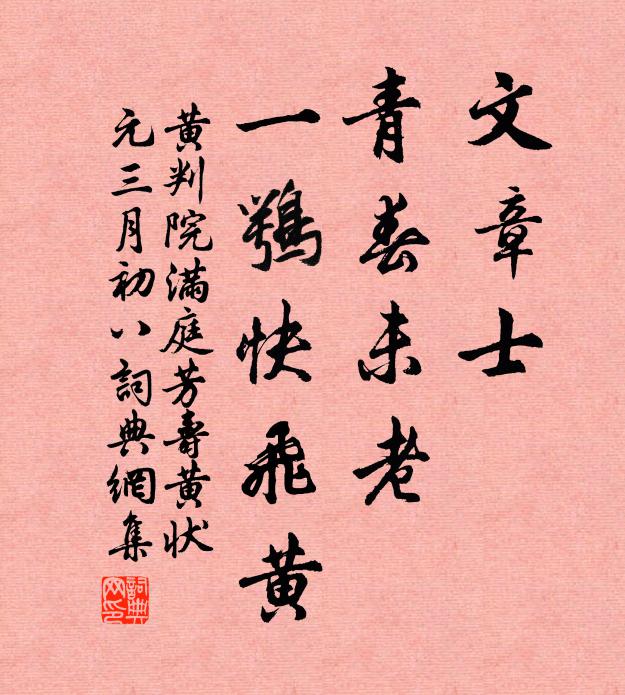 文章士
青春未老
一鶚快飛黄
黄判院滿庭芳壽黄状
元三月初八詞典網集
詞典網印